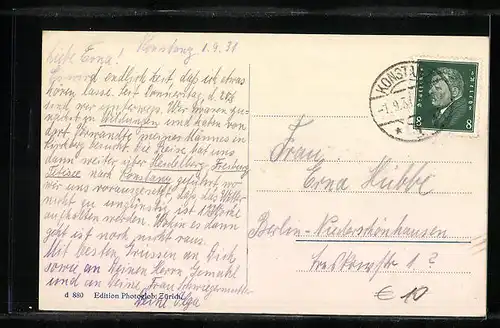 Konstanz 1.9.31
Liebe Erna!
Es wird endlich Zeit, daß ich etwas
hören lasse. Seit Donnerstag, d. 27.8
sind wir unterwegs. Wir waren zu-
nächst in Wildungen und haben von
dort Verwandte meines Mannes in
besucht. Die Reise hat uns
dann weiter über Heidelberg Freiburg
Titisee nach Konstanz geführt wo
wir uns vorausgesetzt, daß das Wetter
nicht zu ungünstig ist 1 Woche
aufhalten werden. Wohin es dann
geht ist noch nicht raus.
Mit besten Grüssen an Dich
sowie an Deinen Herrn Gemahl
und an Deine Frau Schwiegermutter
Deine Olga
d 880 Edition Photoglob Zürich
KONSTA
-1.9.31
8 8
Frau
Erna Hübbe
Berlin-Niederschönhausen
1
€ 10